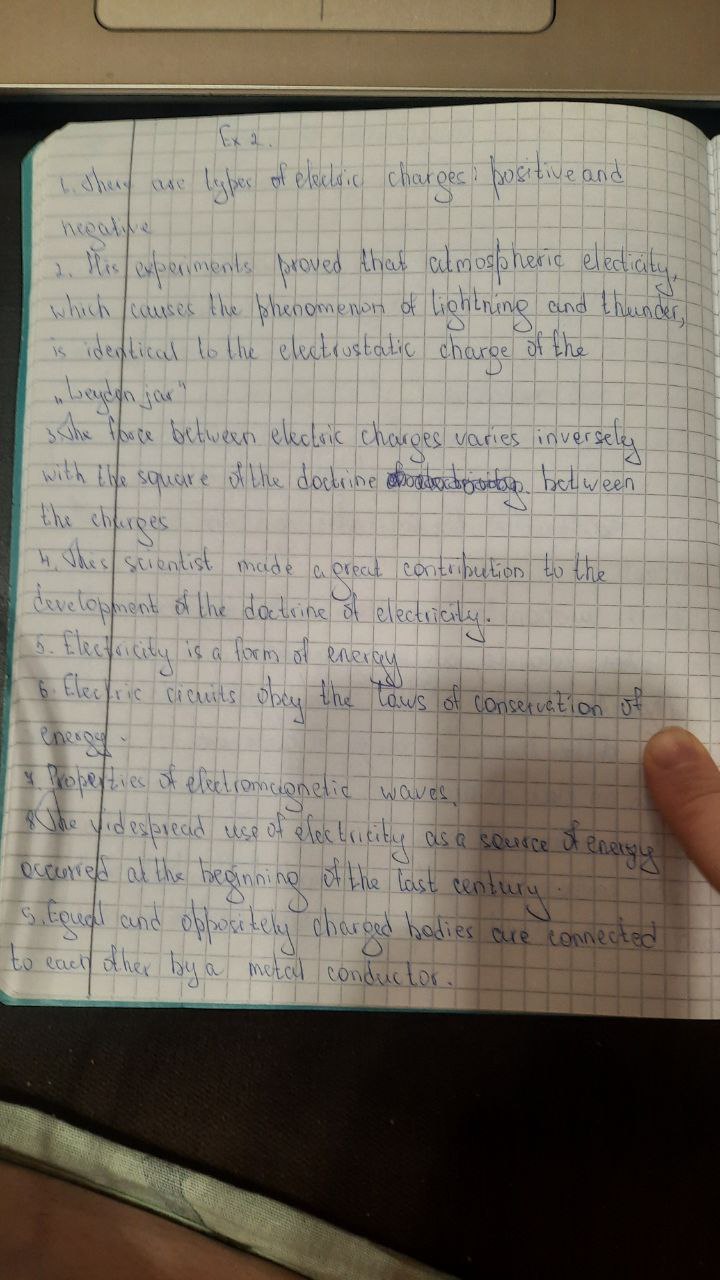 Ex 2.
1. There are types of electric charges: positive and
negative
2. His experiments proved that atmospheric electicity,
which causes the phenomenon of lightning and thunder,
is identical to the electrostatic charge of the
„Leyden jar"
3. The force between electric charges varies inversely
with the square of the doctrine between
the charges
4. This scientist made a great contribution to the
development of the doctrine of electricity.
5. Electricity is a form of energy
6. Electric circuits obey the laws of conservation of
energy.
7. Properties of electromagnetic waves.
8. The videspread use of electricity as a source of energy
occurred at the beginning of the last century.
9. Equal and oppositely charged bodies are connected
to each other by a metal conductor.